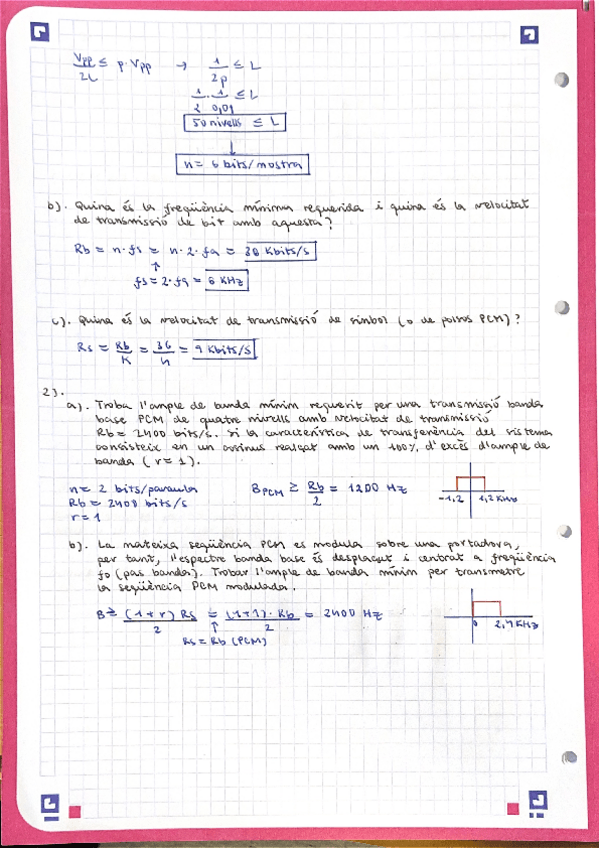 Vpp/2L ≤ p·Vpp → 1/2p ≤ L
1/2 · 1/0,01 ≤ L
50 nivells ≤ L
↓
n = 6 bits/mostra
b). Quina és la freqüència mínima requerida i quina és la velocitat
de transmissió de bit amb aquesta?
Rb = n·fs = n·2·fa = 36 Kbits/s
↑
fs = 2·fa = 6 KHz
c). Quina és la velocitat de transmissió de símbol (o de polsos PCM)?
Rs = Rb/K = 36/4 = 9 Kbits/s
2).
a). Troba l'ample de banda mínim requerit per una transmissió banda
base PCM de quatre nivells amb velocitat de transmissió
Rb = 2400 bits/s. Si la característica de transferència del sistema
consisteix en un cosinus realçat amb un 100% d'excés d'ample de
banda (r=1).
n = 2 bits/paraula
Rb = 2400 bits/s
r = 1
B PCM ≥ Rb/2 = 1200 Hz
-1,2 1,2 KHz
b). La mateixa seqüència PCM es modula sobre una portadora,
per tant, l'espectre banda base és desplaçat i centrat a freqüència
fo (pas banda). Trobar l'ample de banda mínim per transmetre
la seqüència PCM modulada.
B ≥ (1+r) Rs/2 = (1+1)·Rb/2 = 2400 Hz
↑
Rs = Rb (PCM)
0 2,4 KHz